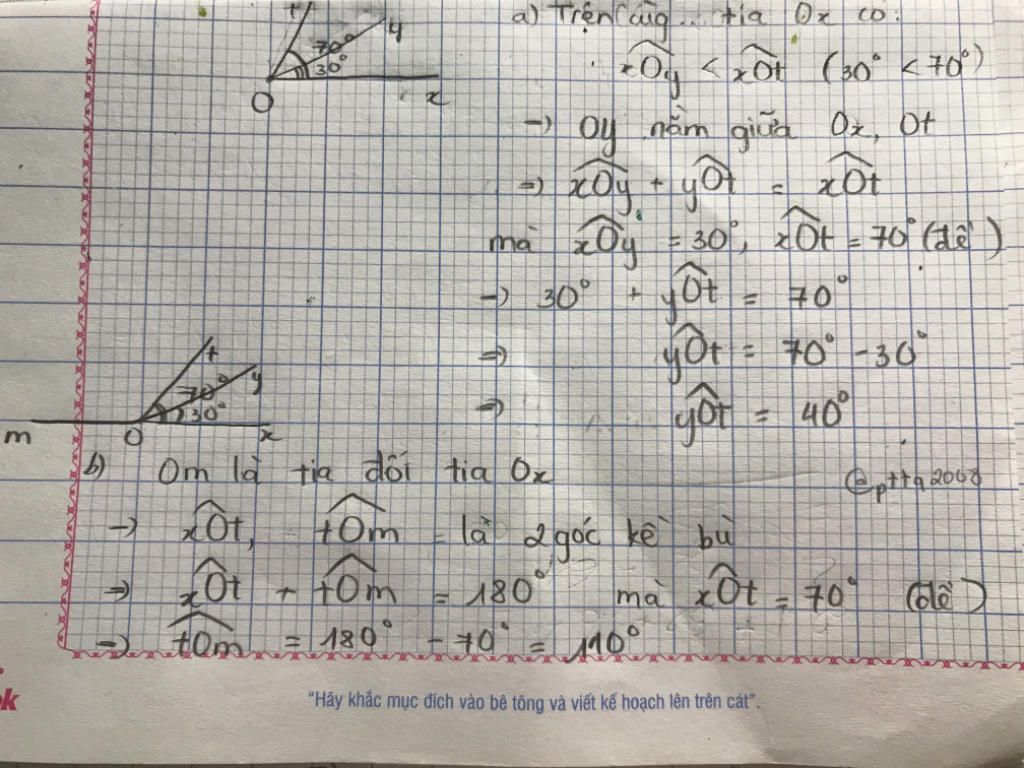 a) Trên cùng... tia Ox có:
xOy < xOt (30° < 70°)
→ Oy nằm giữa Ox, Ot
⇒ xOy + yOt = xOt
mà xOy = 30°, xOt = 70° (đề)
→ 30° + yOt = 70°
⇒ yOt = 70° - 30°
⇒ yOt = 40°
t
y
70°
30°
O
x
t
y
70°
30°
m
O
x
b) Om là tia đối tia Ox
@ptta2008
→ xOt, tOm là 2 góc kề bù
⇒ xOt + tOm = 180° mà xOt = 70° (đề)
→ tOm = 180° - 70° = 110°
ok
"Hãy khắc mục đích vào bê tông và viết kế hoạch lên trên cát".